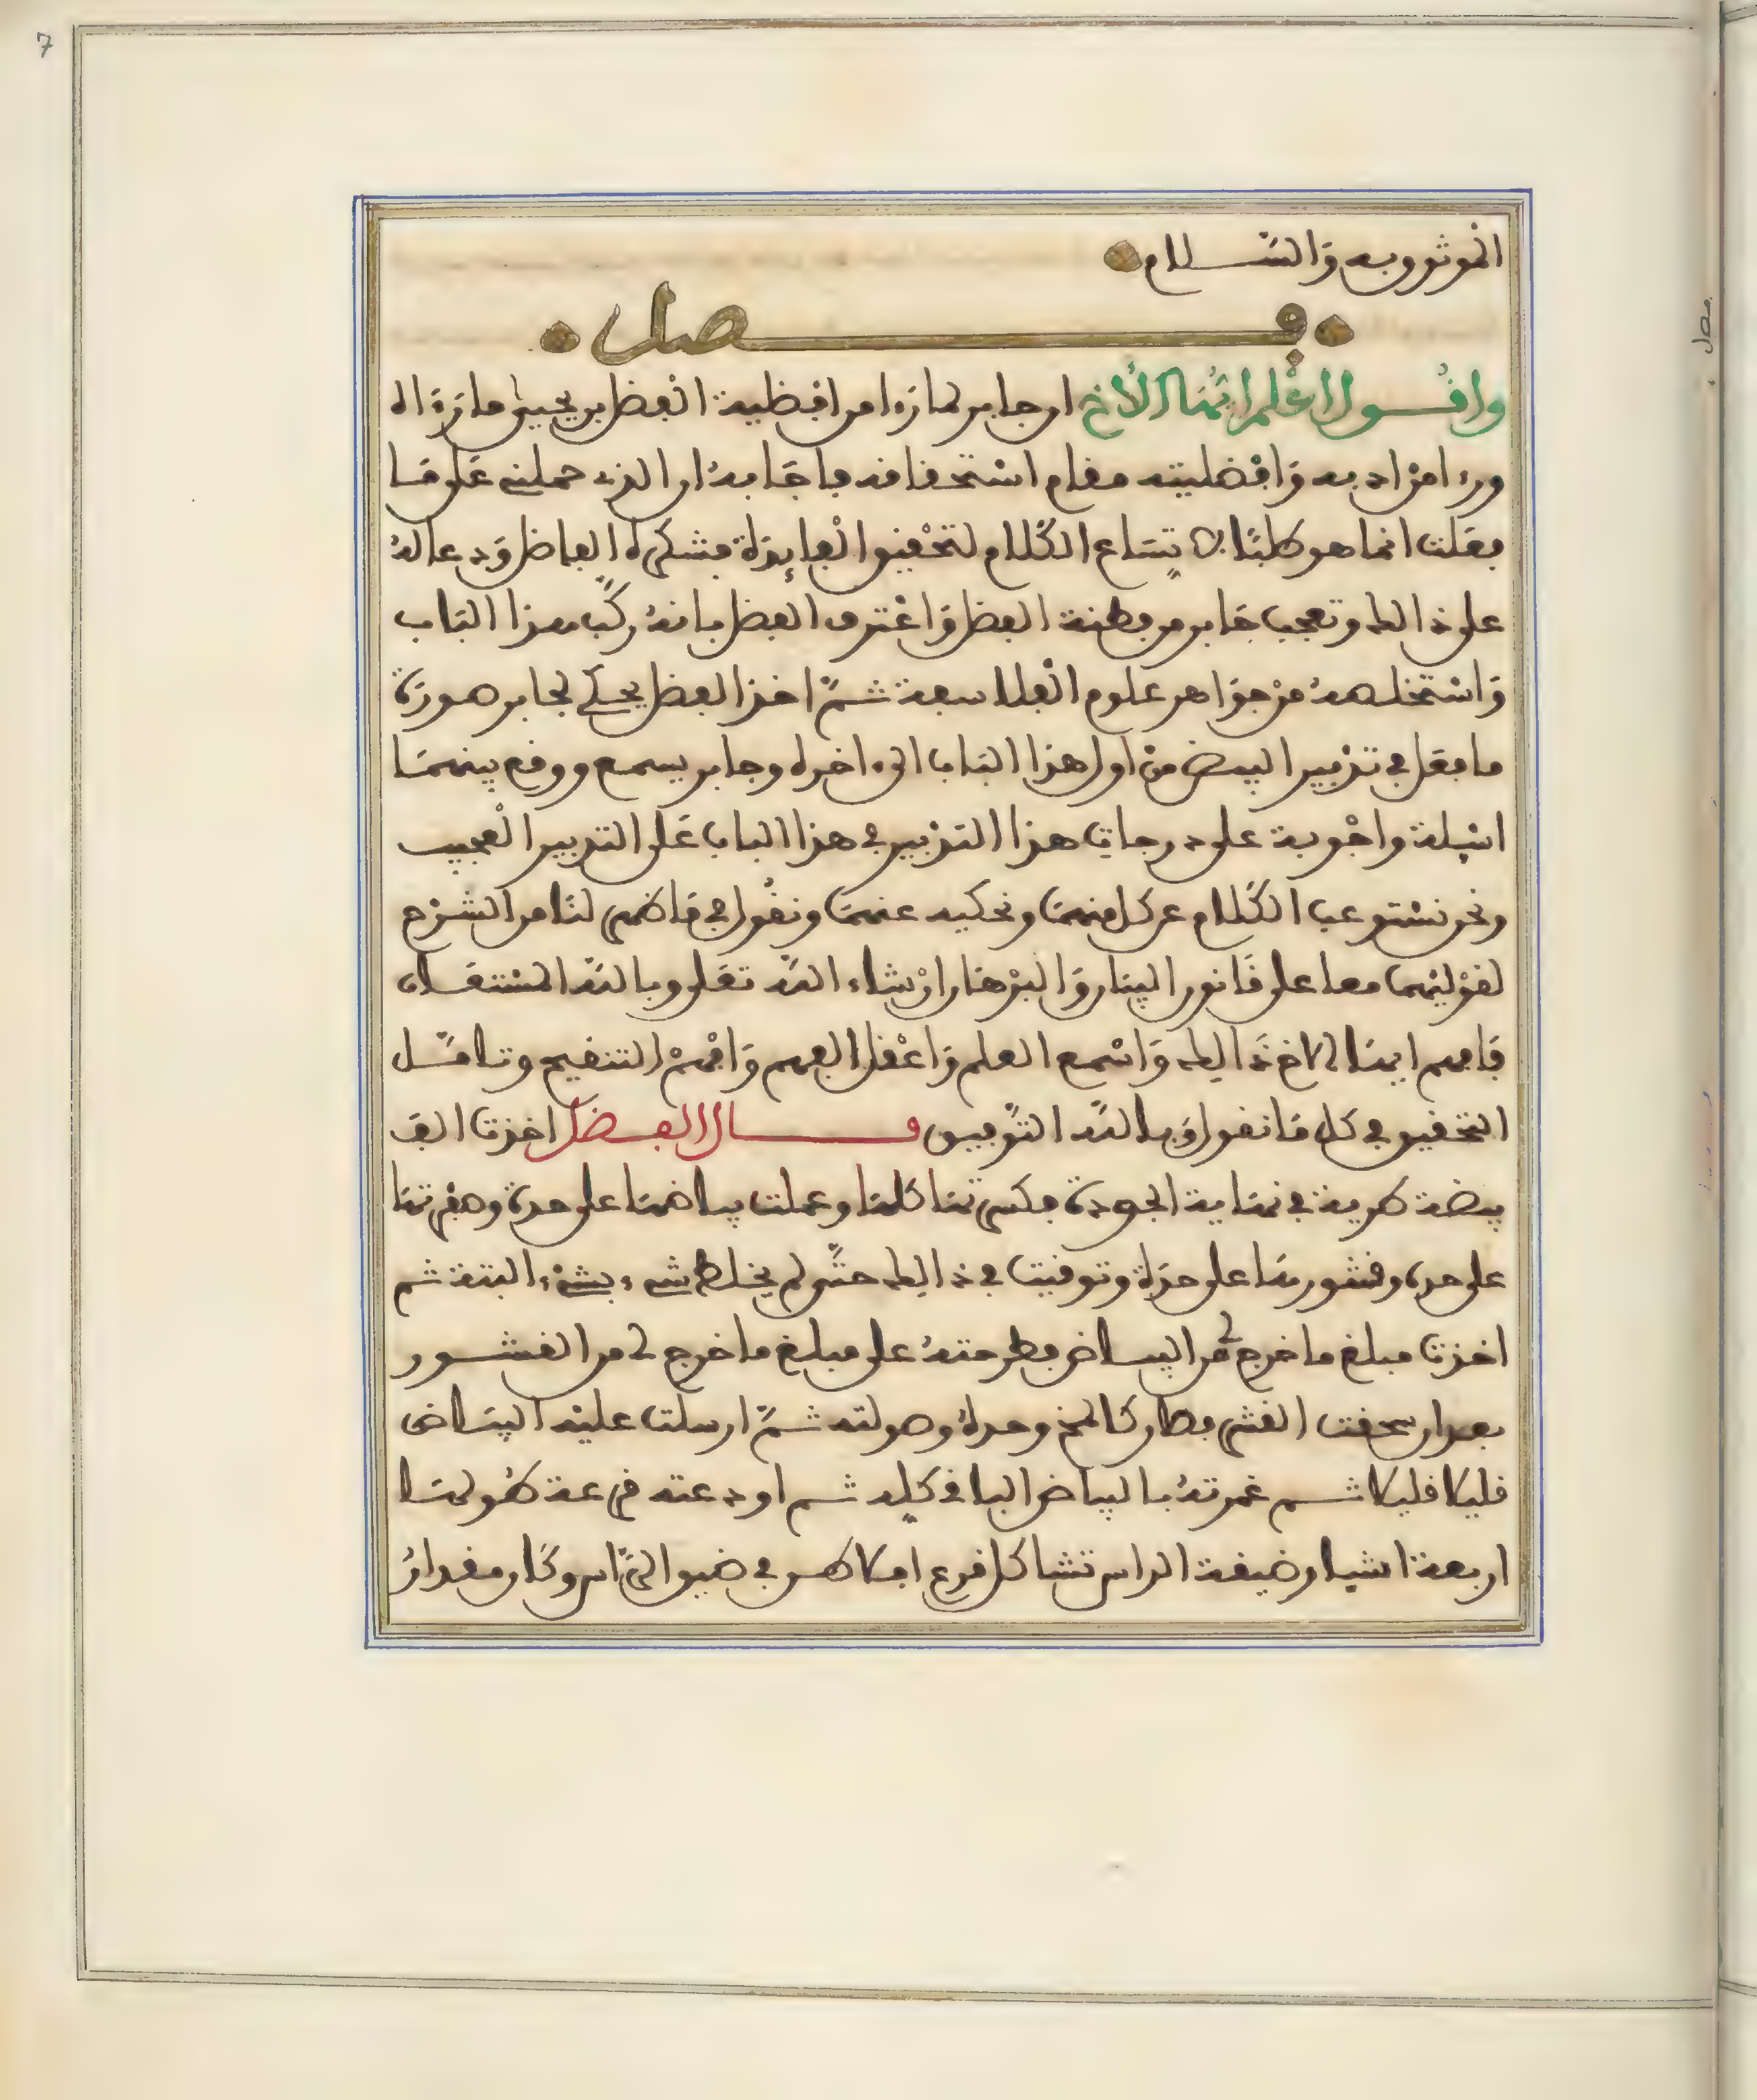 7
الموثوق به والسلام
فصل
واقول اعلم ايها الأخ ان جابر لما رءا من افضلية الفضل بن يحيى ما رءاه
ورءا من ادبه وافضليته مقام استحقاقه فاجابه ان الذي حملني على ما
فعلت انما هو طلبا لاتساع الكلام لتحقيق الفايدة فشكره الفاضل ودعا له
على ذالك وتعجب جابر من فطنة الفضل واعترف الفضل بانه ركب هذا الباب
واستخلصه من جواهر علوم الفلاسفة ثم اخذ الفضل يحكي لجابر صورة
ما فعل في تدبير البيض من اول هذا الباب الى ءاخره وجابر يسمع ووقع بينهما
اسيلة واجوبة على درجات هذا التدبير في هذا الباب على التدبير العجيب
ونحن نستوعب الكلام عن كل منهما ونحكيه عنهما ونقول في ما ظهر لنا من الشرح
لقوليهما معا على قانون البيان والبرهان ان شاء الله تعلى وبالله المستعان
فافهم ايها الاخ ذالك واسمع العلم واعقل الفهم وافهم التنقيح وتامل
التحقيق في كل ما نقول وبالله التوفيق قال الفضل اخذت الف
بيضة طرية في نهاية الجودة فكسرتها كلها وعملت بياضها على حدة وصفرتها
على حدة وقشورها على حدة وتوقيت في ذالك حتى لم يخلط شيء بشيء البتة ثم
اخذت مبلغ ما خرج لي من البياض فطرحته على مبلغ ما خرج لي من القشور
بعد ان سحقت القشر فصار كالمخ وحده وصولته ثم ارسلت عليه البياض
قليلا قليلا ثم غمرته بالبياض الباقي كله ثم اودعته قرعة طولها
اربعة اشبار ضيقة الراس تشاكل قرع افلاطن في ضيق الراس وكان مقدار
فصل